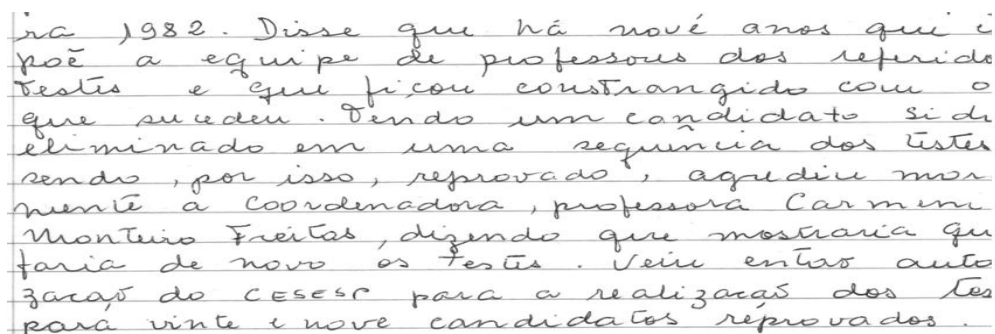 ra 1982. Disse que há nove anos que c
poẽ a equipe de professores dos referido
testes e que ficou constrangido com o
que sucedeu. Tendo um candidato sido
eliminado em uma sequência dos testes
sendo, por isso, reprovado, agrediu mor
mente a coordenadora, professora Carmem
Monteiro Freitas, dizendo que mostraria qu
faria de novo os testes. Veiu então auto
zação do CESESP para a realização dos tes
para vinte e nove candidatos reprovados.